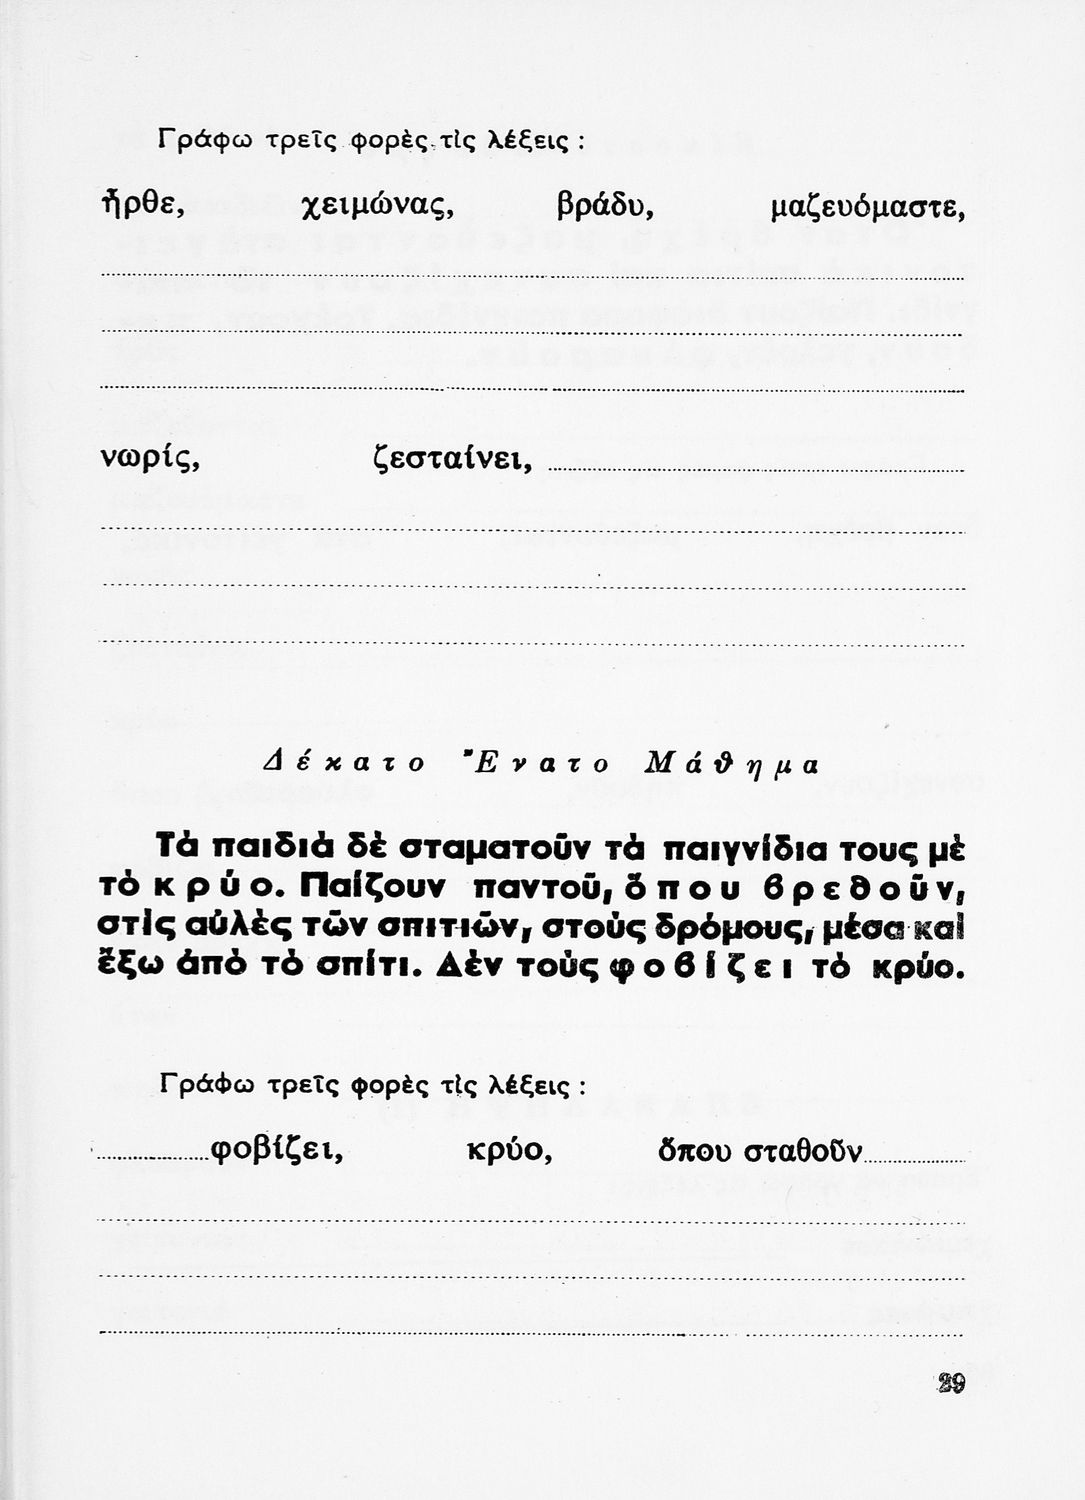 Γράφω τρεῖς φορὲς τὶς λέξεις :
ἦρθε, χειμώνας, βράδυ, μαζευόμαστε,
νωρίς, ζεσταίνει,
Δέκατο Ἔνατο Μάθημα
Τὰ παιδιὰ δὲ σταματοῦν τὰ παιγνίδια τους μὲ
τὸ κρύο. Παίζουν παντοῦ, ὅπου βρεθοῦν,
στὶς αὐλὲς τῶν σπιτιῶν, στοὺς δρόμους, μέσα καὶ
ἔξω ἀπὸ τὸ σπίτι. Δὲν τοὺς φοβίζει τὸ κρύο.
Γράφω τρεῖς φορὲς τὶς λέξεις :
φοβίζει, κρύο, ὅπου σταθοῦν
29